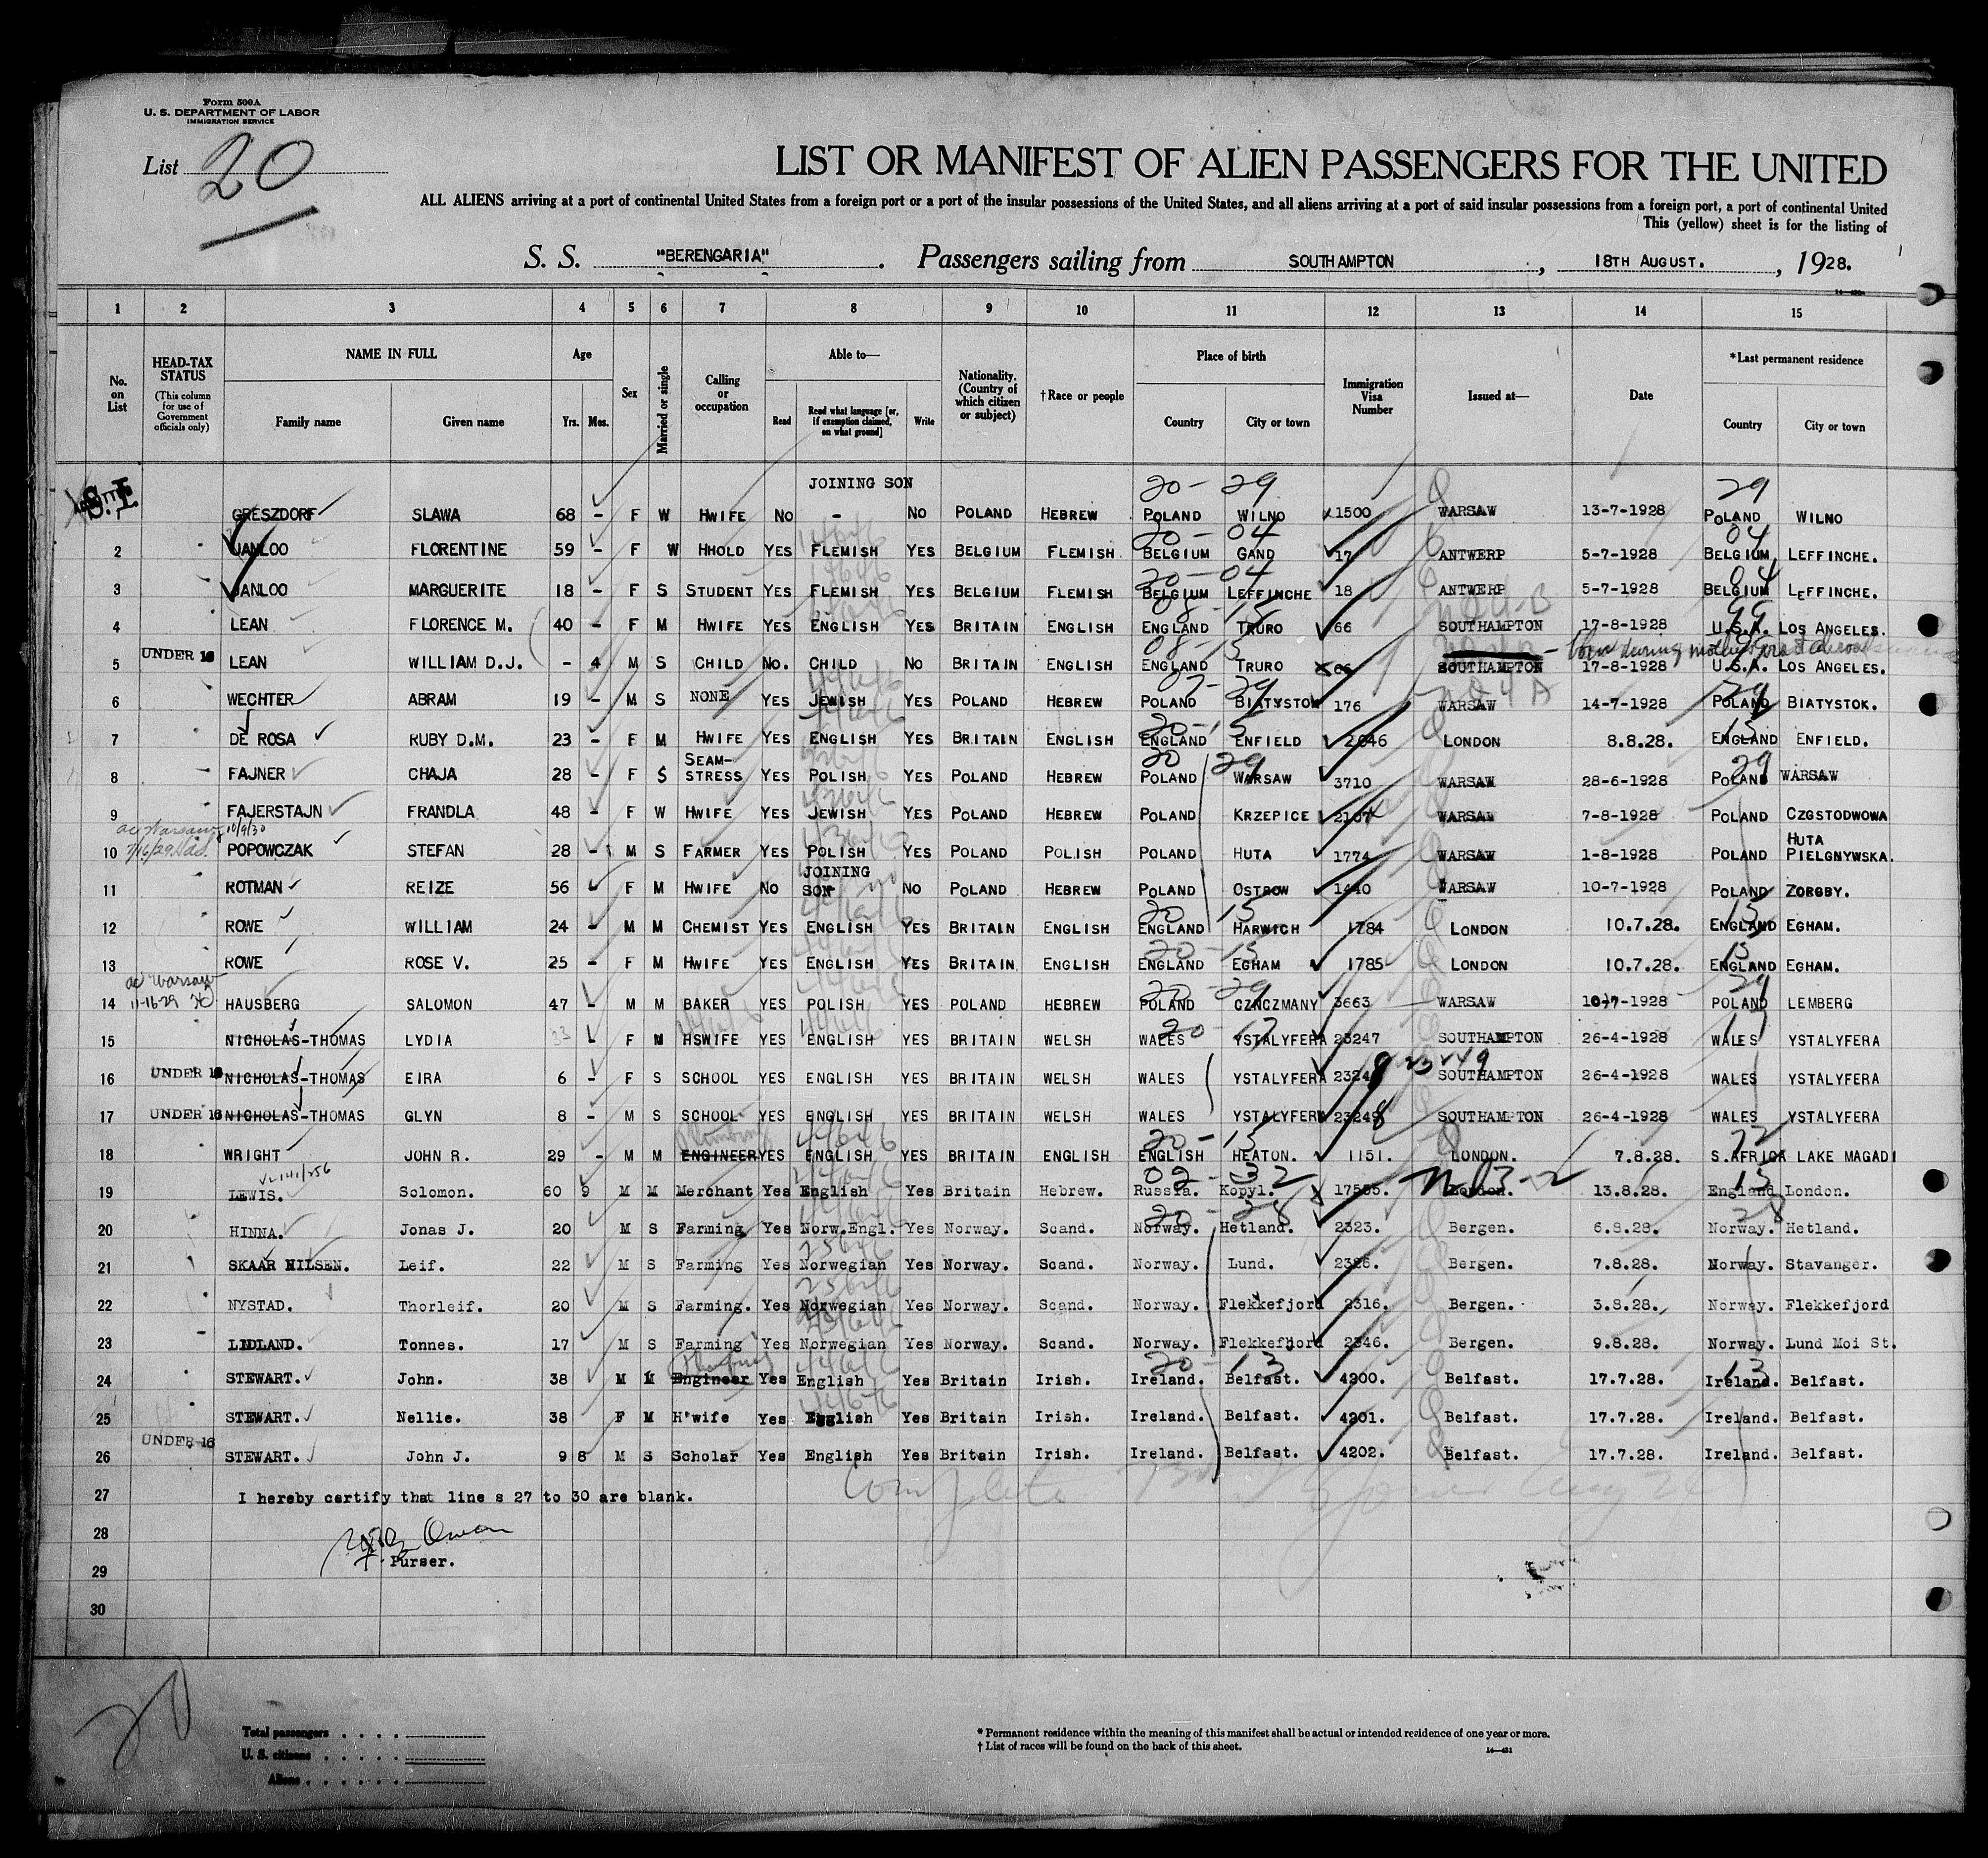 Form 500A
U. S. DEPARTMENT OF LABOR
IMMIGRATION SERVICE
List 20
LIST OR MANIFEST OF ALIEN PASSENGERS FOR THE UNITED
ALL ALIENS arriving at a port of continental United States from a foreign port or a port of the insular possessions of the United States, and all aliens arriving at a port of said insular possessions from a foreign port, a port of continental United
This (yellow) sheet is for the listing of
S. S. "BERENGARIA". Passengers sailing from SOUTHAMPTON, 18TH AUGUST., 1928.
1 2 3 4 5 6 7 8 9 10 11 12 13 14 15
No. on List
HEAD-TAX STATUS (This column for use of Government officials only)
NAME IN FULL Family name Given name
Age Yrs. Mos.
Sex
Married or single
Calling or occupation
Able to— Read Read what language [or, if exemption claimed, on what ground] Write
Nationality. (Country of which citizen or subject)
†Race or people
Place of birth Country City or town
Immigration Visa Number
Issued at—
Date
*Last permanent residence Country City or town
JOINING SON 20-29 29
S.I. GRESZDORF SLAWA 68 - F W HWIFE NO - NO POLAND HEBREW POLAND WILNO 1500 WARSAW 13-7-1928 POLAND WILNO
20-04 04
2 JANLOO FLORENTINE 59 - F W HHOLD YES FLEMISH YES BELGIUM FLEMISH BELGIUM GAND 17 ANTWERP 5-7-1928 BELGIUM LEFFINCHE.
20-04 04
3 JANLOO MARGUERITE 18 - F S STUDENT YES FLEMISH YES BELGIUM FLEMISH BELGIUM LEFFINCHE 18 ANTWERP 5-7-1928 BELGIUM LEFFINCHE.
08-15 99
4 LEAN FLORENCE M. 40 - F M HWIFE YES ENGLISH YES BRITAIN ENGLISH ENGLAND TRURO 66 SOUTHAMPTON 17-8-1928 U.S.A. LOS ANGELES.
08-15 born during mother's
5 UNDER 16 LEAN WILLIAM D.J. - 4 M S CHILD NO. CHILD NO BRITAIN ENGLISH ENGLAND TRURO 66 SOUTHAMPTON 17-8-1928 U.S.A. LOS ANGELES.
07-29 29
6 WECHTER ABRAM 19 - M S NONE YES JEWISH YES POLAND HEBREW POLAND BIATYSTOW 176 WARSAW 14-7-1928 POLAND BIATYSTOK.
20-15 15
7 DE ROSA RUBY D.M. 23 - F M HWIFE YES ENGLISH YES BRITAIN ENGLISH ENGLAND ENFIELD 2046 LONDON 8.8.28. ENGLAND ENFIELD.
20 29 29
8 FAJNER CHAJA 28 - F S SEAM-STRESS YES POLISH YES POLAND HEBREW POLAND WARSAW 3710 WARSAW 28-6-1928 POLAND WARSAW
9 FAJERSTAJN FRANDLA 48 - F W HWIFE YES JEWISH YES POLAND HEBREW POLAND KRZEPICE 2107 WARSAW 7-8-1928 POLAND CZGSTODWOWA
10 POPOWCZAK STEFAN 28 - M S FARMER YES POLISH YES POLAND POLISH POLAND HUTA 1774 WARSAW 1-8-1928 POLAND HUTA PIELGNYWSKA.
11 ROTMAN REIZE 56 F M HWIFE NO JOINING SON NO POLAND HEBREW POLAND OSTROW 1440 WARSAW 10-7-1928 POLAND ZORGBY.
20 15 15
12 ROWE WILLIAM 24 - M M CHEMIST YES ENGLISH YES BRITAIN ENGLISH ENGLAND HARWICH 1784 LONDON 10.7.28. ENGLAND EGHAM.
20-15 15
13 ROWE ROSE V. 25 - F M HWIFE YES ENGLISH YES BRITAIN ENGLISH ENGLAND EGHAM 1785 LONDON 10.7.28. ENGLAND EGHAM.
20-29 29
14 11-16-29 HAUSBERG SALOMON 47 - M M BAKER YES POLISH YES POLAND HEBREW POLAND CZNCZMANY 3663 WARSAW 10-7-1928 POLAND LEMBERG
20-17 17
15 NICHOLAS-THOMAS LYDIA 33 - F M HSWIFE YES ENGLISH YES BRITAIN WELSH WALES YSTALYFERA 23247 SOUTHAMPTON 26-4-1928 WALES YSTALYFERA
16 UNDER 16 NICHOLAS-THOMAS EIRA 6 - F S SCHOOL YES ENGLISH YES BRITAIN WELSH WALES YSTALYFERA 23249 SOUTHAMPTON 26-4-1928 WALES YSTALYFERA
17 UNDER 16 NICHOLAS-THOMAS GLYN 8 - M S SCHOOL YES ENGLISH YES BRITAIN WELSH WALES YSTALYFERA 23248 SOUTHAMPTON 26-4-1928 WALES YSTALYFERA
Plumbing 20-15
18 WRIGHT JOHN R. 29 - M M ENGINEER YES ENGLISH YES BRITAIN ENGLISH ENGLISH HEATON. 1151. LONDON. 7.8.28. S.AFRICA LAKE MAGADI
02-32 ND3-2 15
19 LEWIS. Solomon. 60 9 M M Merchant Yes English Yes Britain Hebrew. Russia. Kopyl. 17555. London. 13.8.28. England London.
20-28 28
20 HINNA. Jonas J. 20 M S Farming Yes Norw.Engl. Yes Norway. Scand. Norway. Hetland. 2323. Bergen. 6.8.28. Norway. Hetland.
21 SKAAR NILSEN. Leif. 22 M S Farming Yes Norwegian Yes Norway. Scand. Norway. Lund. 2326. Bergen. 7.8.28. Norway. Stavanger.
22 NYSTAD. Thorleif. 20 M S Farming. Yes Norwegian Yes Norway. Scand. Norway. Flekkefjord 2316. Bergen. 3.8.28. Norway. Flekkefjord
23 LEDLAND. Tonnes. 17 M S Farming Yes Norwegian Yes Norway. Scand. Norway. Flekkefjord 2346. Bergen. 9.8.28. Norway. Lund Moi St.
20-13 13
24 STEWART. John. 38 M M Engineer Yes English Yes Britain Irish. Ireland. Belfast. 4200. Belfast. 17.7.28. Ireland. Belfast.
25 STEWART. Nellie. 38 F M H'wife Yes English Yes Britain Irish. Ireland. Belfast. 4201. Belfast. 17.7.28. Ireland. Belfast.
26 UNDER 16 STEWART. John J. 9 8 M S Scholar Yes English Yes Britain Irish. Ireland. Belfast. 4202. Belfast. 17.7.28. Ireland. Belfast.
Complete
27 I hereby certify that line s 27 to 30 are blank.
28
Purser.
29
30
20
Total passengers . . . .
U. S. citizens . . . . .
Aliens . . . . . .
* Permanent residence within the meaning of this manifest shall be actual or intended residence of one year or more.
† List of races will be found on the back of this sheet.
14—431